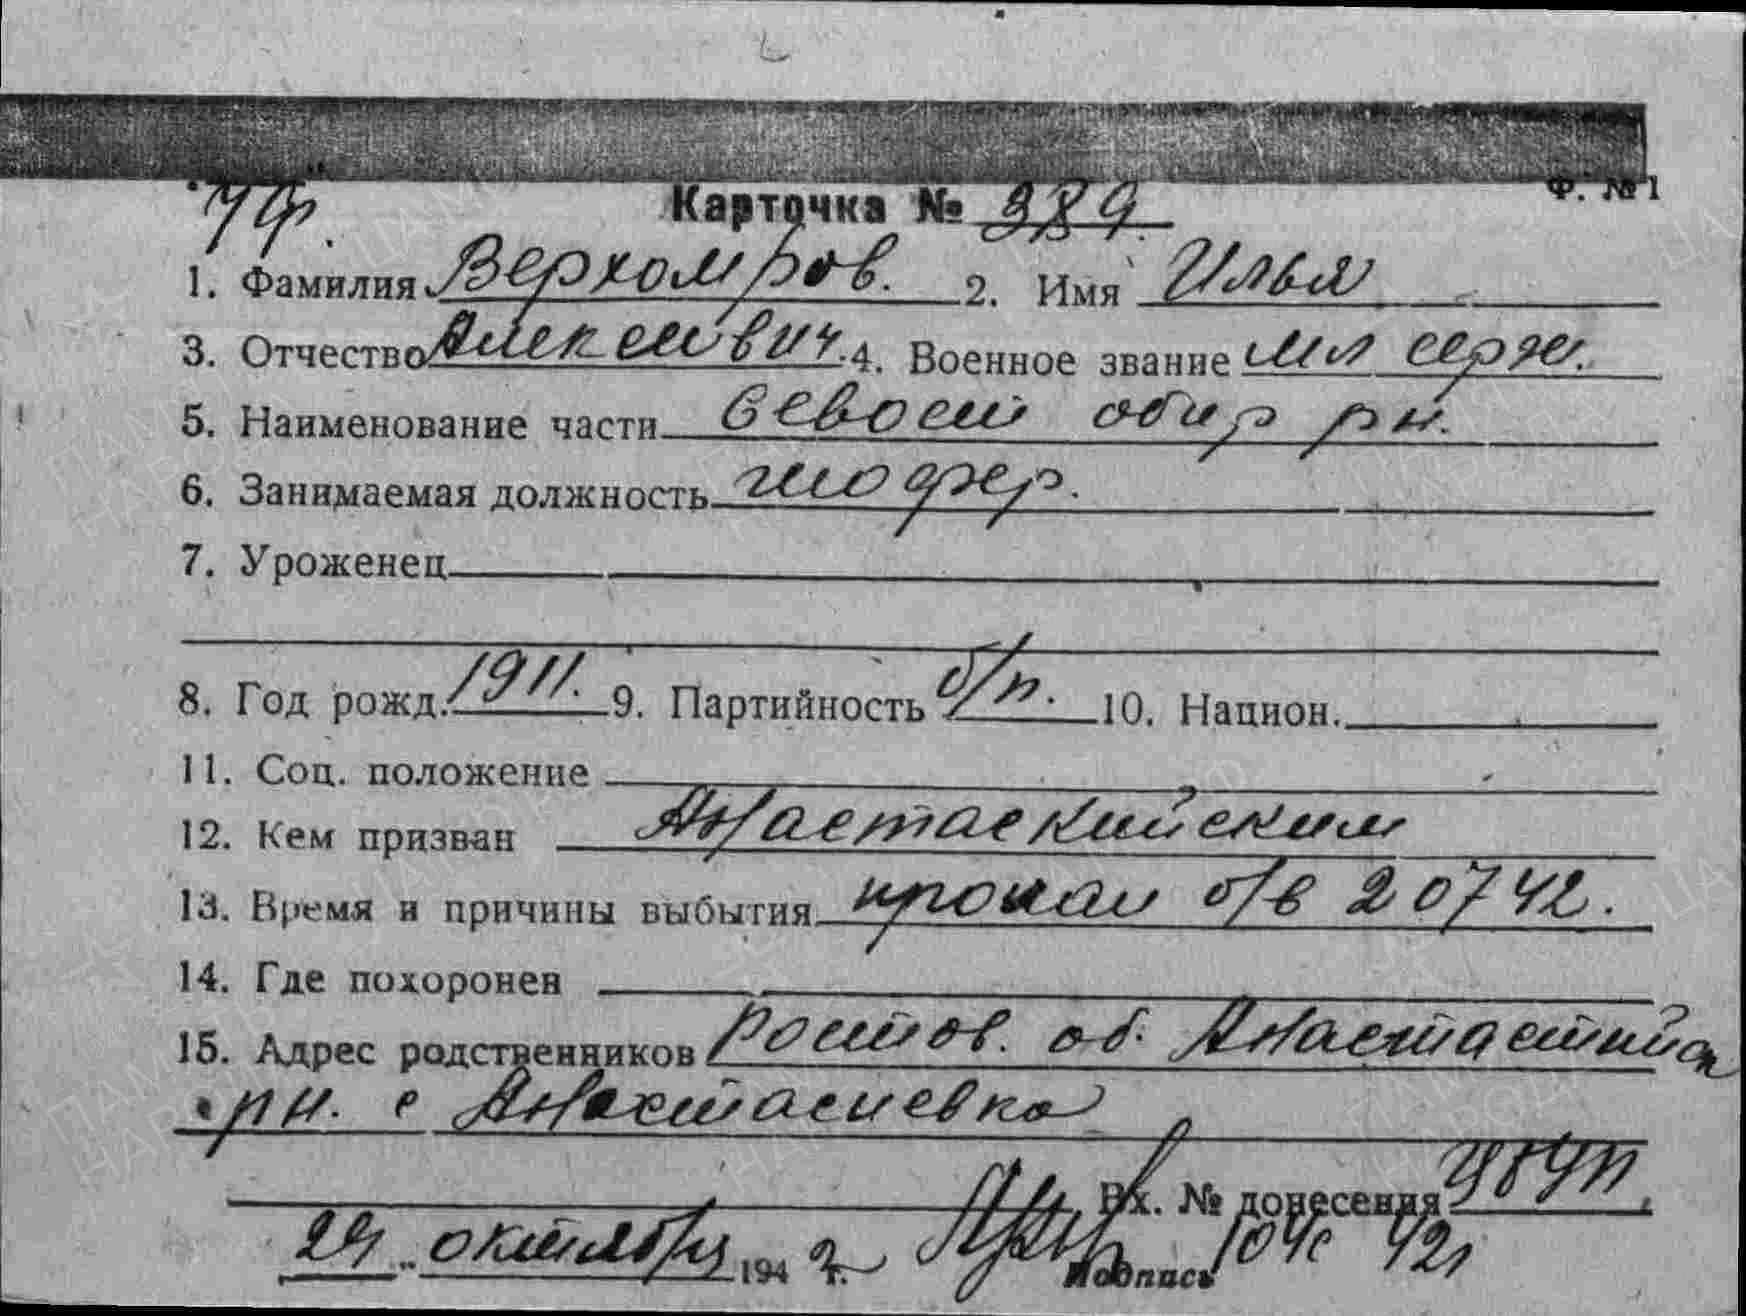 Ф. № 1
Карточка № 389
1. Фамилия Верхомров. 2. Имя Илья
3. Отчество Алексеевич. 4. Военное звание мл серж.
5. Наименование части Севост обир рн.
6. Занимаемая должность шофер.
7. Уроженец
8. Год рожд. 1911. 9. Партийность б/п. 10. Национ.
11. Соц. положение
12. Кем призван Анастаскийским
13. Время и причины выбытия пропал б/в 20742.
14. Где похоронен
15. Адрес родственников Ростов. об.
рн. с Анастасиевка
Вх. № донесения
24 октября 1942 г. Подпись